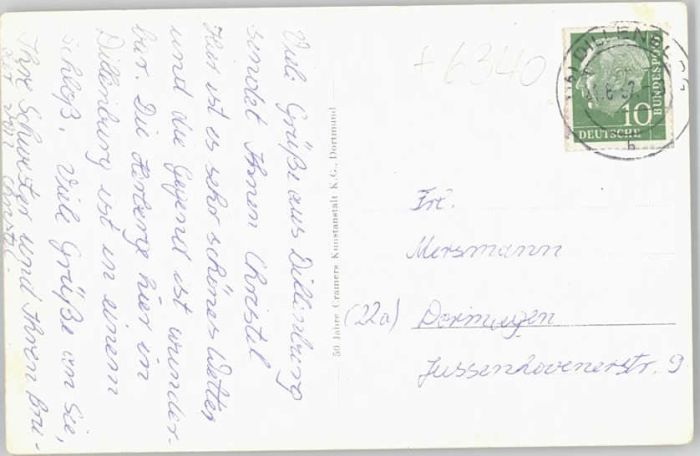 Viele Grüße aus Dillenburg
sendet Ihnen Christel
Hier ist es sehr schönes Wetter
und die Gegend ist wunder-
bar. Die Herberge hier in
Dillenburg ist in einem
Schloß. Viele Grüße an Sie,
Ihre Schwester und Ihren Bru-
der von Christel.
50 Jahre Cramers Kunstanstalt K.G., Dortmund
+ 6340
DILLENBURG
10
BUNDESPOST
DEUTSCHE
b
Frl.
Mersmann
(22a) Dormagen
Jussenhovenerstr. 9